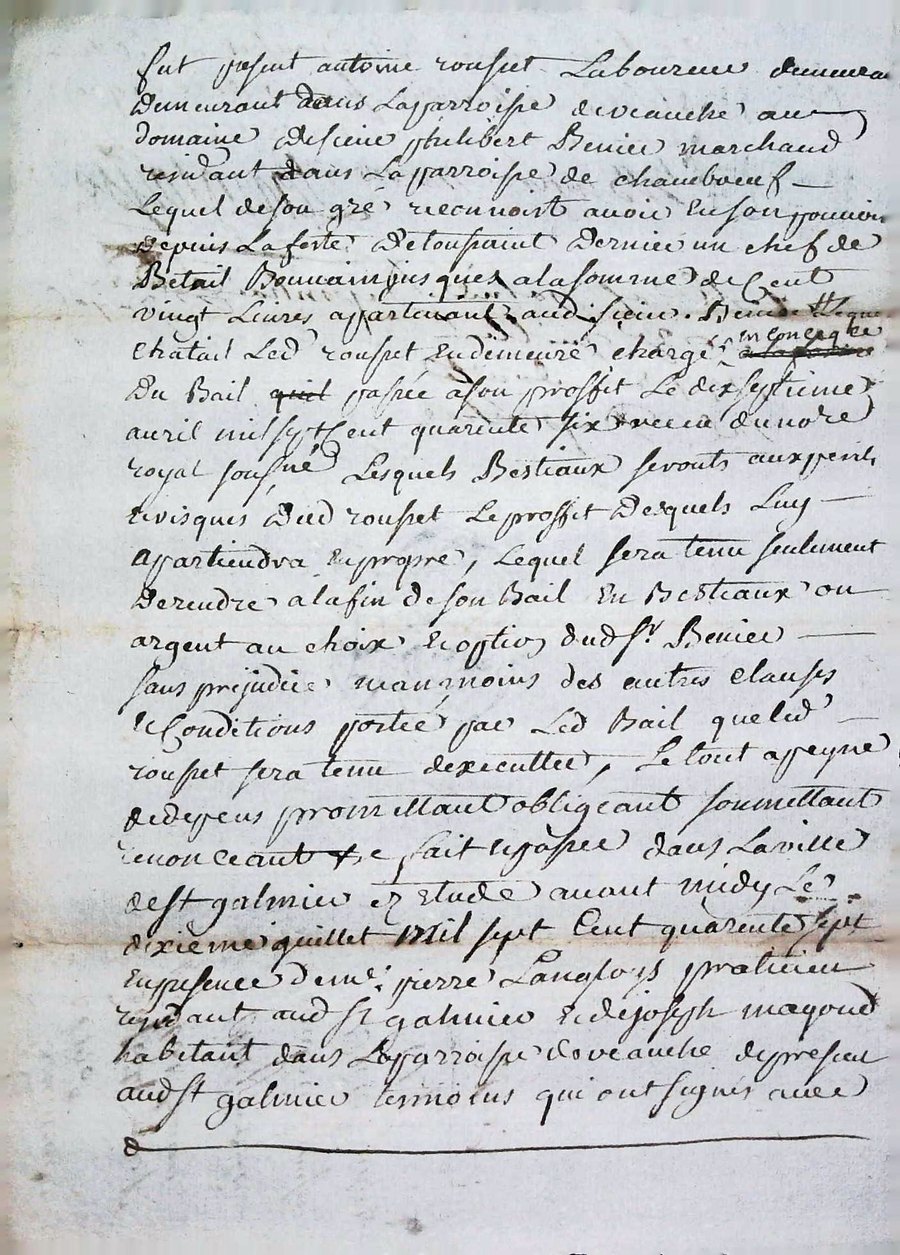 fut present antoine rousset Laboureur
Demeurant dans Laparroisse deveauche au
domaine desieur philibert Benier marchand
resid.ant dans La parroisse de chambœuf
Lequel deson gré reconnoist avoir Enson pouvoir
depuis La feste Detoussaint Dernier un chef de
Betail ala somme de Cent
vingt Livres appartenant audit sieur Benier Leque
chatail Led rousset Endemeure chargé
Du Bail quil passée àson proffit Le dixseptieme
avril mil sept Cent quarente six receu dunore
royal sousné Lesquels Bestiaux seronts auxperils
Erisques Dud rousset Leproffit Desquels Luy
apartiendra Enpropre, Lequel sera tenu seulement
Derendre alafin deson Bail En Bestiaux ou
argent au choix Eoption dud Sr Benier
sans prejudice neanmoins des autres clauses
E Conditions portée par Led Bail queled
rousset sera tenu dexecutter, Le tout apeyne
dedepens promettant obligeant soumettant
renonceant &e fait Epassée dans Laville
deSt galmier ez Etude avant midy Le
dixieme juillet Mil sept Cent quarente sept
Enpresence deme. pierre Langloys praticien
resid.ant aud St galmier Edejoseph magoud
habitant dans Laparroisse deveauche depresent
aud St galmier temoins qui ont signés avec